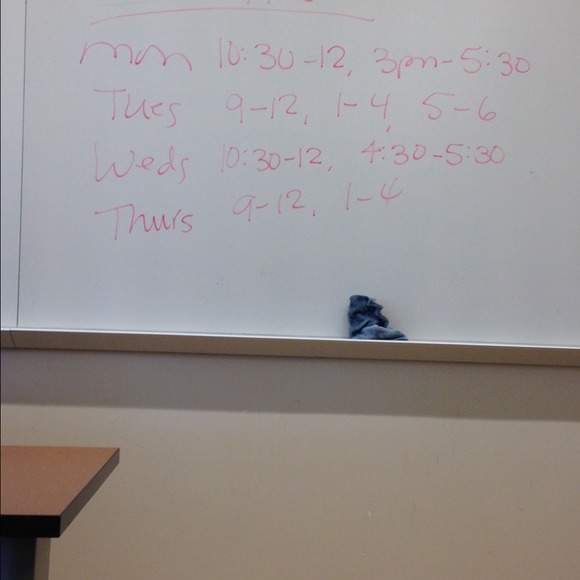 Mon 10:30-12, 3pm-5:30
Tues 9-12, 1-4, 5-6
Weds 10:30-12, 4:30-5:30
Thurs 9-12, 1-4